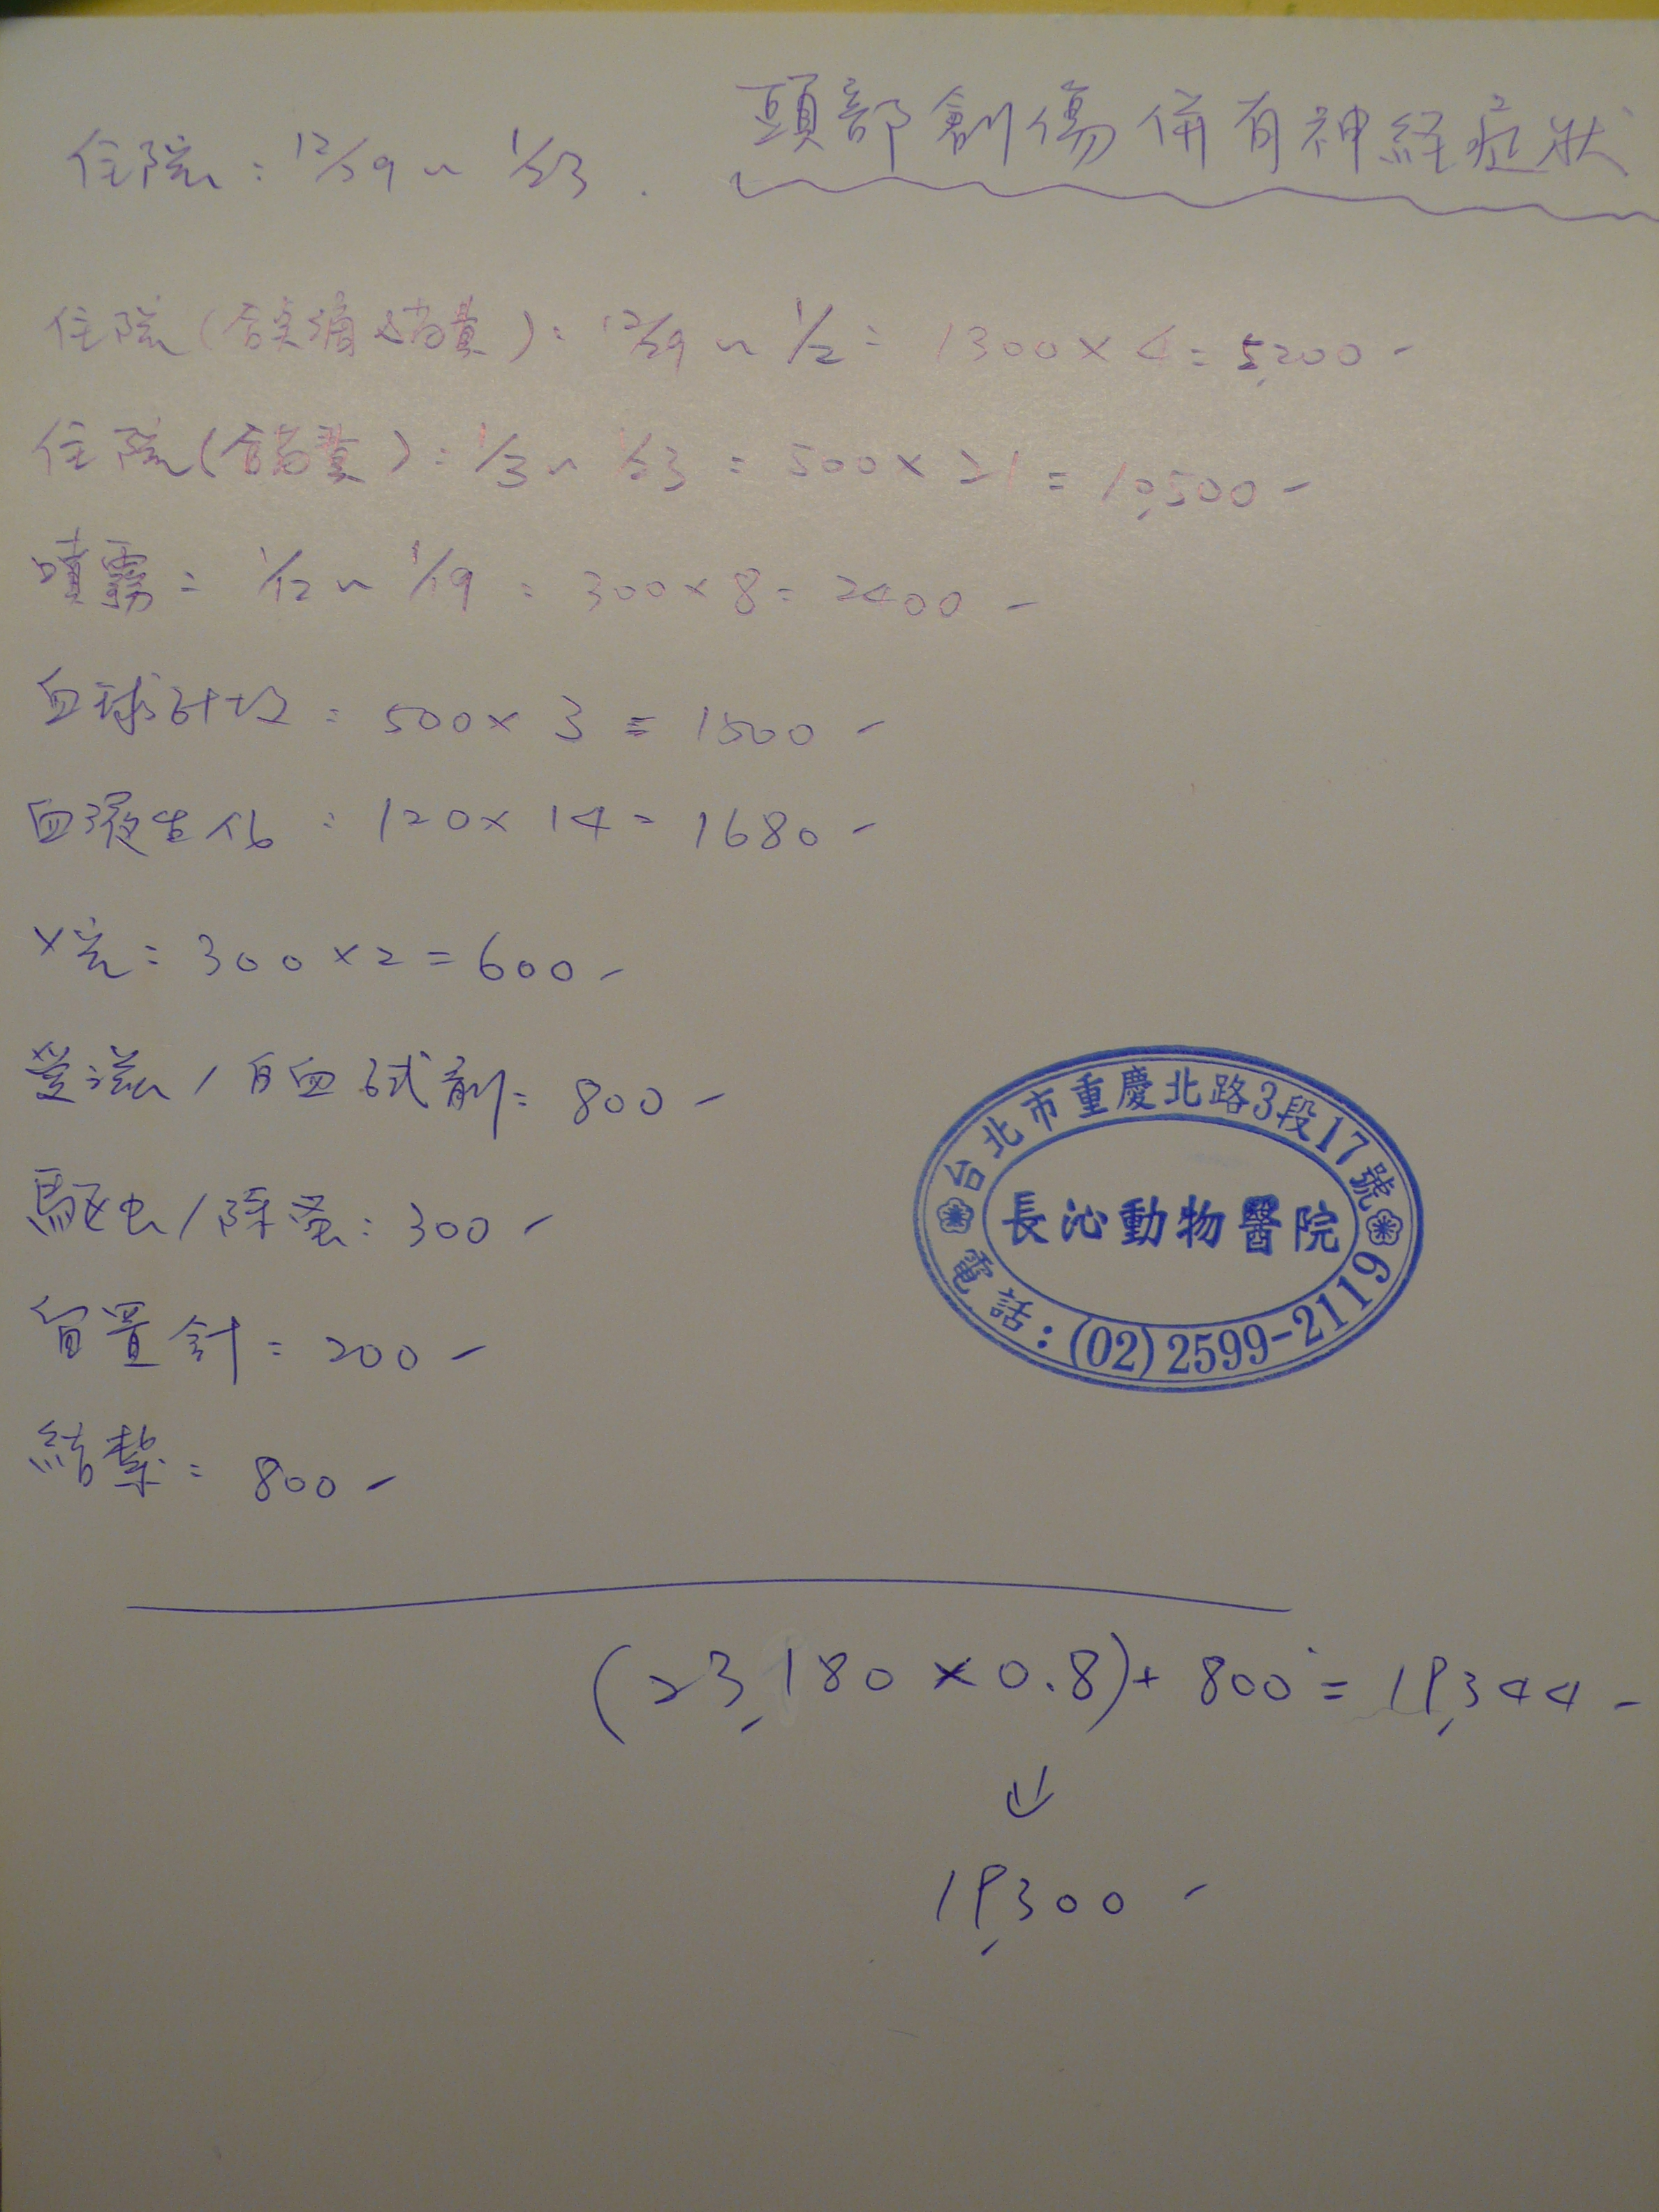 住院：12/29～1/23． 頭部創傷併有神経症狀
住院(含点滴 費)：12/29～1/2＝1300×4＝5,200-
住院(含 費)：1/3～1/23＝500×21＝10,500-
噴霧＝1/12～1/19＝300×8＝2400-
血球計 ：500×3＝1500-
血液生化：120×14＝1680-
X光：300×2＝600-
愛滋/白血試劑：800-
驅虫/除蚤：300-
留置針：200-
結紮：800-
台北市重慶北路3段17號
長沁動物醫院
電話：(02)2599-2119
(23,180×0.8)+800＝19,344-
↓
19,300-